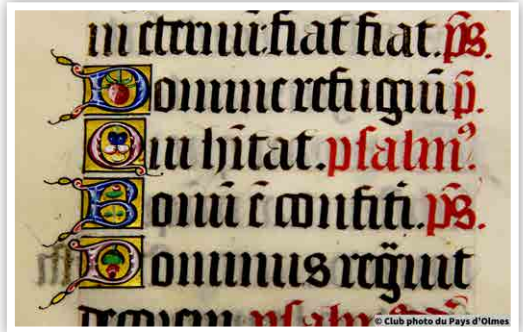 in eternū:fiat fiat.p̄s.
Domine refugiū p̄.
Qui hītat.psalmꝰ.
Bonū ē confiti.p̄s.
Dominus regnͣuit
© Club photo du Pays d'Olmes